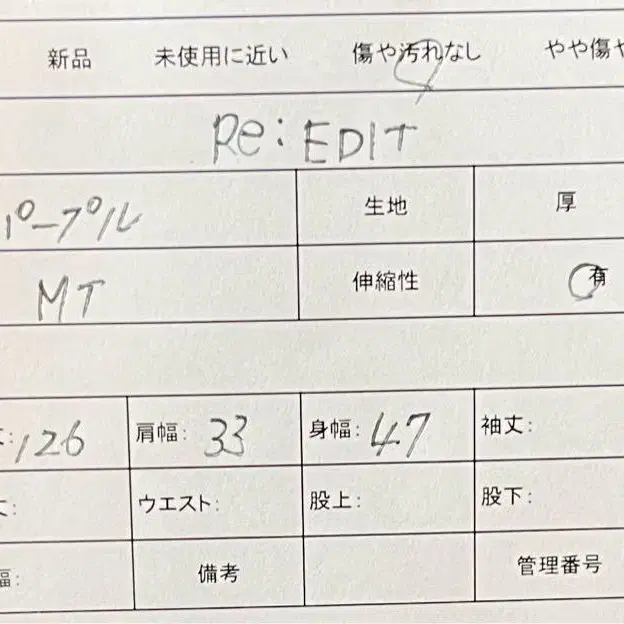 新品 未使用に近い 傷や汚れなし やや傷や
Re:EDIT
パープル 生地 厚
MT 伸縮性 有
丈:126 肩幅: 33 身幅: 47 袖丈:
丈: ウエスト: 股上: 股下:
幅: 備考 管理番号